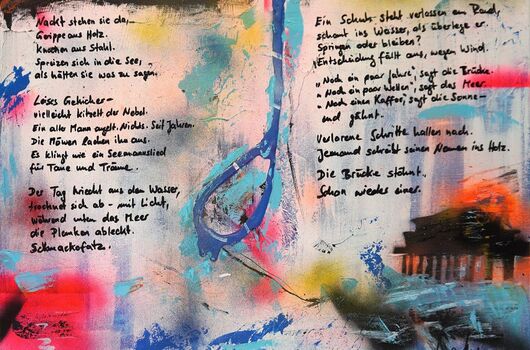 Nackt stehen sie da,
Gerippe aus Holz.
Knochen aus Stahl.
Spreizen sich in die See,
als hätten sie was zu sagen.
Leises Gekicher –
vielleicht kitzelt der Nebel.
Ein alter Mann angelt. Nichts. Seit Jahren.
Die Möwen lachen ihn aus.
Es klingt wie ein Seemannslied
für Taue und Träume.
Der Tag kriecht aus dem Wasser,
trocknet sich ab – mit Licht,
während unten das Meer
die Planken ableckt.
Schmackofatz.
Ein Schuh steht verlassen am Rand,
schaut ins Wasser, als überlege er.
Springen oder bleiben?
Entscheidung fällt aus, wegen Wind.
"Noch ein paar Jahre", sagt die Brücke.
"Noch ein paar Wellen", sagt das Meer.
"Noch einen Kaffee", sagt die Sonne –
und gähnt.
Verlorene Schritte hallen nach.
Jemand schreibt seinen Namen ins Holz.
Die Brücke stöhnt.
Schon wieder einer.